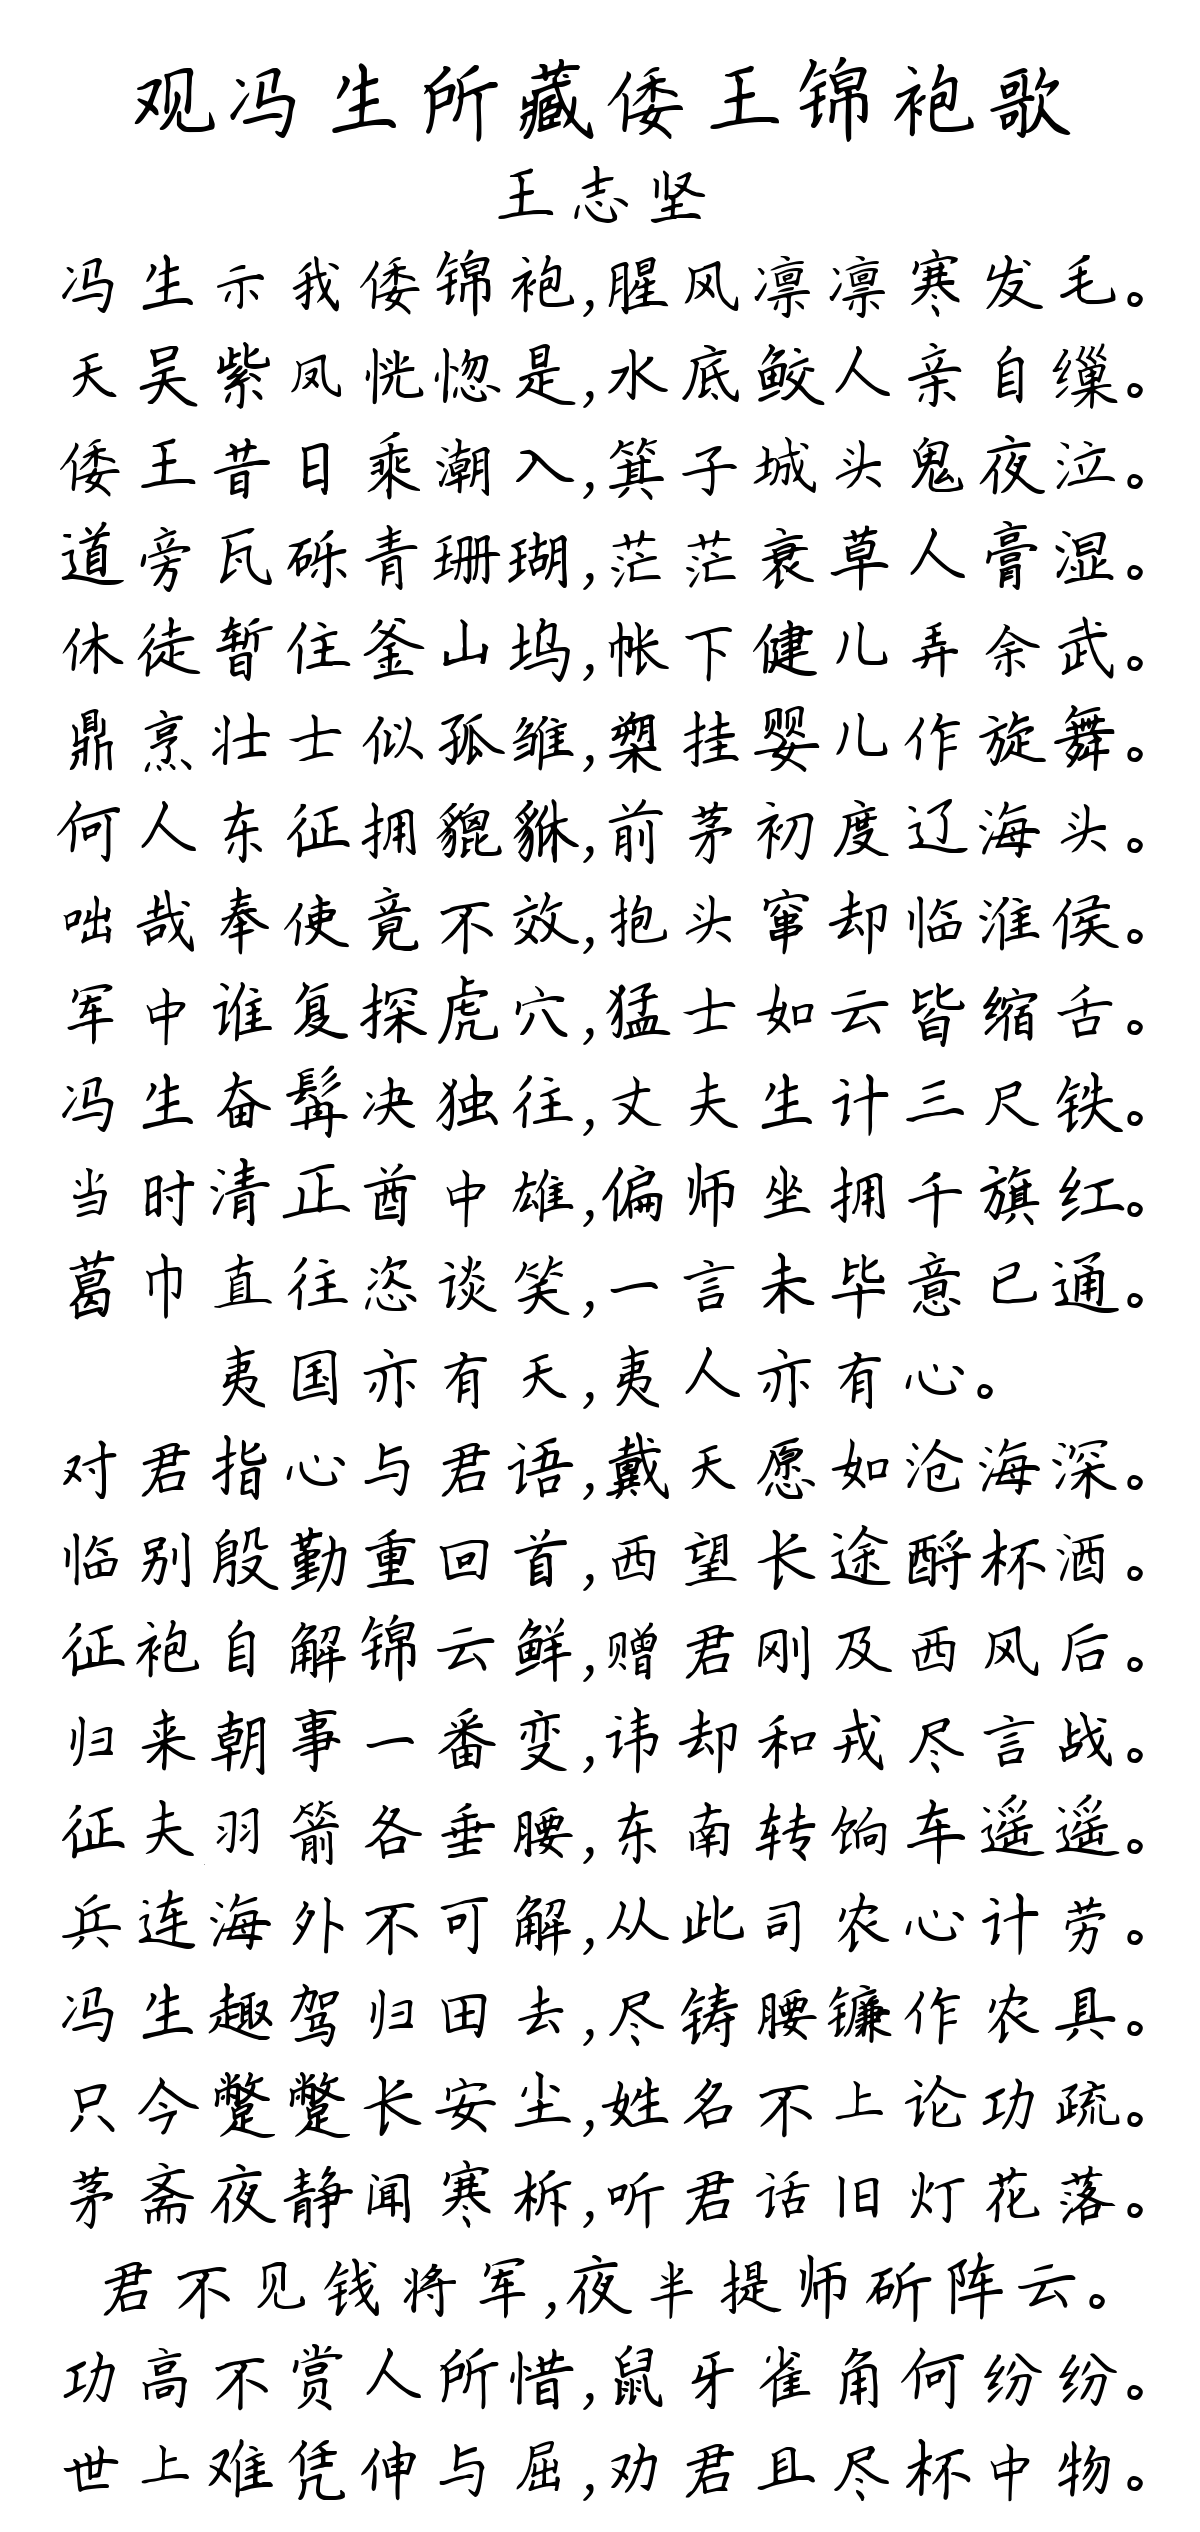 观冯生所藏倭王锦袍歌
王志坚
冯生示我倭锦袍,腥风凛凛寒发毛。
天吴紫凤恍惚是,水底鲛人亲自缫。
倭王昔日乘潮入,箕子城头鬼夜泣。
道旁瓦砾青珊瑚,茫茫衰草人膏湿。
休徒暂住釜山坞,帐下健儿弄余武。
鼎烹壮士似孤雏,槊挂婴儿作旋舞。
何人东征拥貔貅,前茅初度辽海头。
咄哉奉使竟不效,抱头窜却临淮侯。
军中谁复探虎穴,猛士如云皆缩舌。
冯生奋髯决独往,丈夫生计三尺铁。
当时清正酋中雄,偏师坐拥千旗红。
葛巾直往恣谈笑,一言未毕意已通。
夷国亦有天,夷人亦有心。
对君指心与君语,戴天愿如沧海深。
临别殷勤重回首,西望长途酹杯酒。
征袍自解锦云鲜,赠君刚及西风后。
归来朝事一番变,讳却和戎尽言战。
征夫羽箭各垂腰,东南转饷车遥遥。
兵连海外不可解,从此司农心计劳。
冯生趣驾归田去,尽铸腰镰作农具。
只今蹩蹩长安尘,姓名不上论功疏。
茅斋夜静闻寒柝,听君话旧灯花落。
君不见钱将军,夜半提师斫阵云。
功高不赏人所惜,鼠牙雀角何纷纷。
世上难凭伸与屈,劝君且尽杯中物。